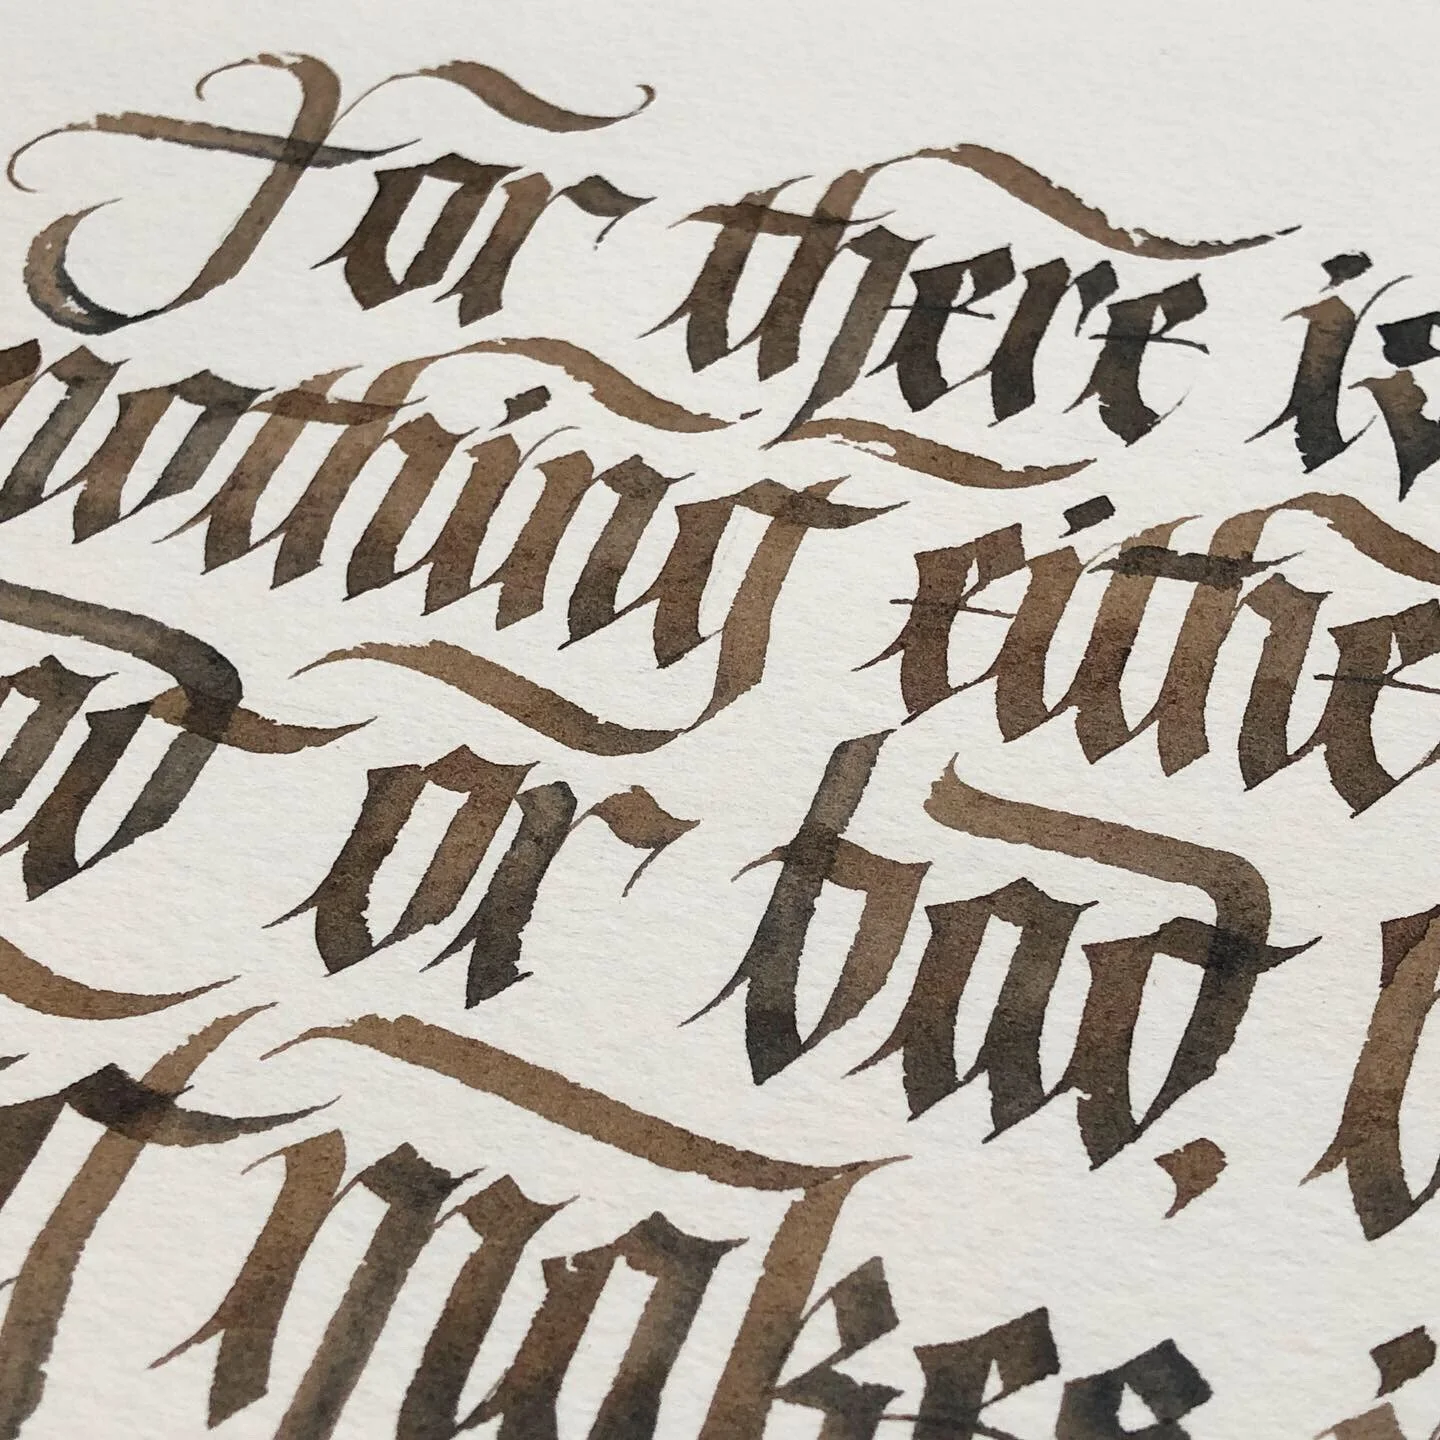 For there is
nothing either
or bad,
makes